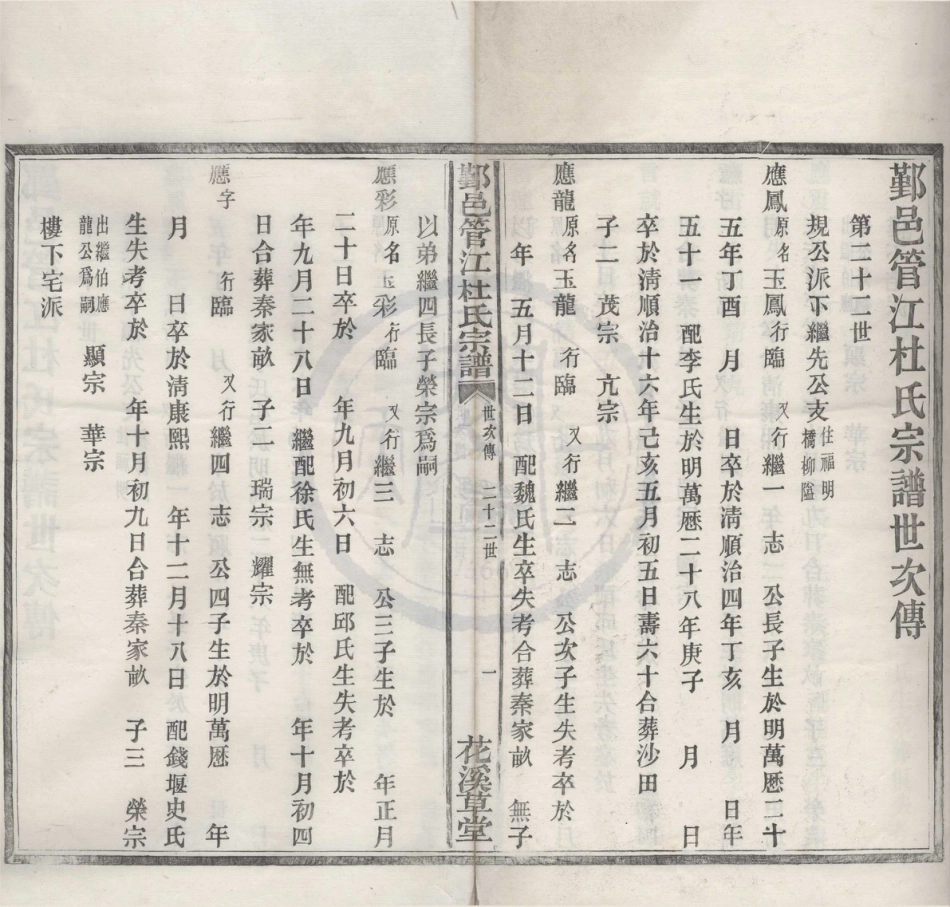 鄞邑管江杜氏宗譜世次傳
第二十二世
規公派下繼先公支住福明橋柳隘
應鳳原名玉鳳行臨 又行繼一 志 公長子生於明萬曆二十
五年丁酉 月 日卒於清順治四年丁亥 月 日年
五十一 配李氏生於明萬曆二十八年庚子 月 日
卒於清順治十六年己亥五月初五日壽六十合葬沙田
子二 茂宗 亢宗
應龍原名玉龍 行臨 又行繼二 志 公次子生失考卒於
年 五月十二日 配魏氏生卒失考合葬秦家畝 無子
鄞邑管江杜氏宗譜 世次傳 二十二世 一 花溪草堂
以弟繼四長子榮宗爲嗣
應彩原名玉彩行臨 又行繼三 志 公三子生於 年正月
二十日卒於 年九月初六日 配邱氏生失考卒於
年九月二十八日 繼配徐氏生無考卒於 年十月初四
日合葬秦家畝 子二 瑞宗 耀宗
應字 行臨 又行繼四 志 公四子生於明萬曆 年
月 日卒於清康熙 年十二月十八日 配錢堰史氏
生失考卒於 年十月初九日合葬秦家畝 子三 榮宗
出繼伯應龍公爲嗣 顯宗 華宗
樓下宅派